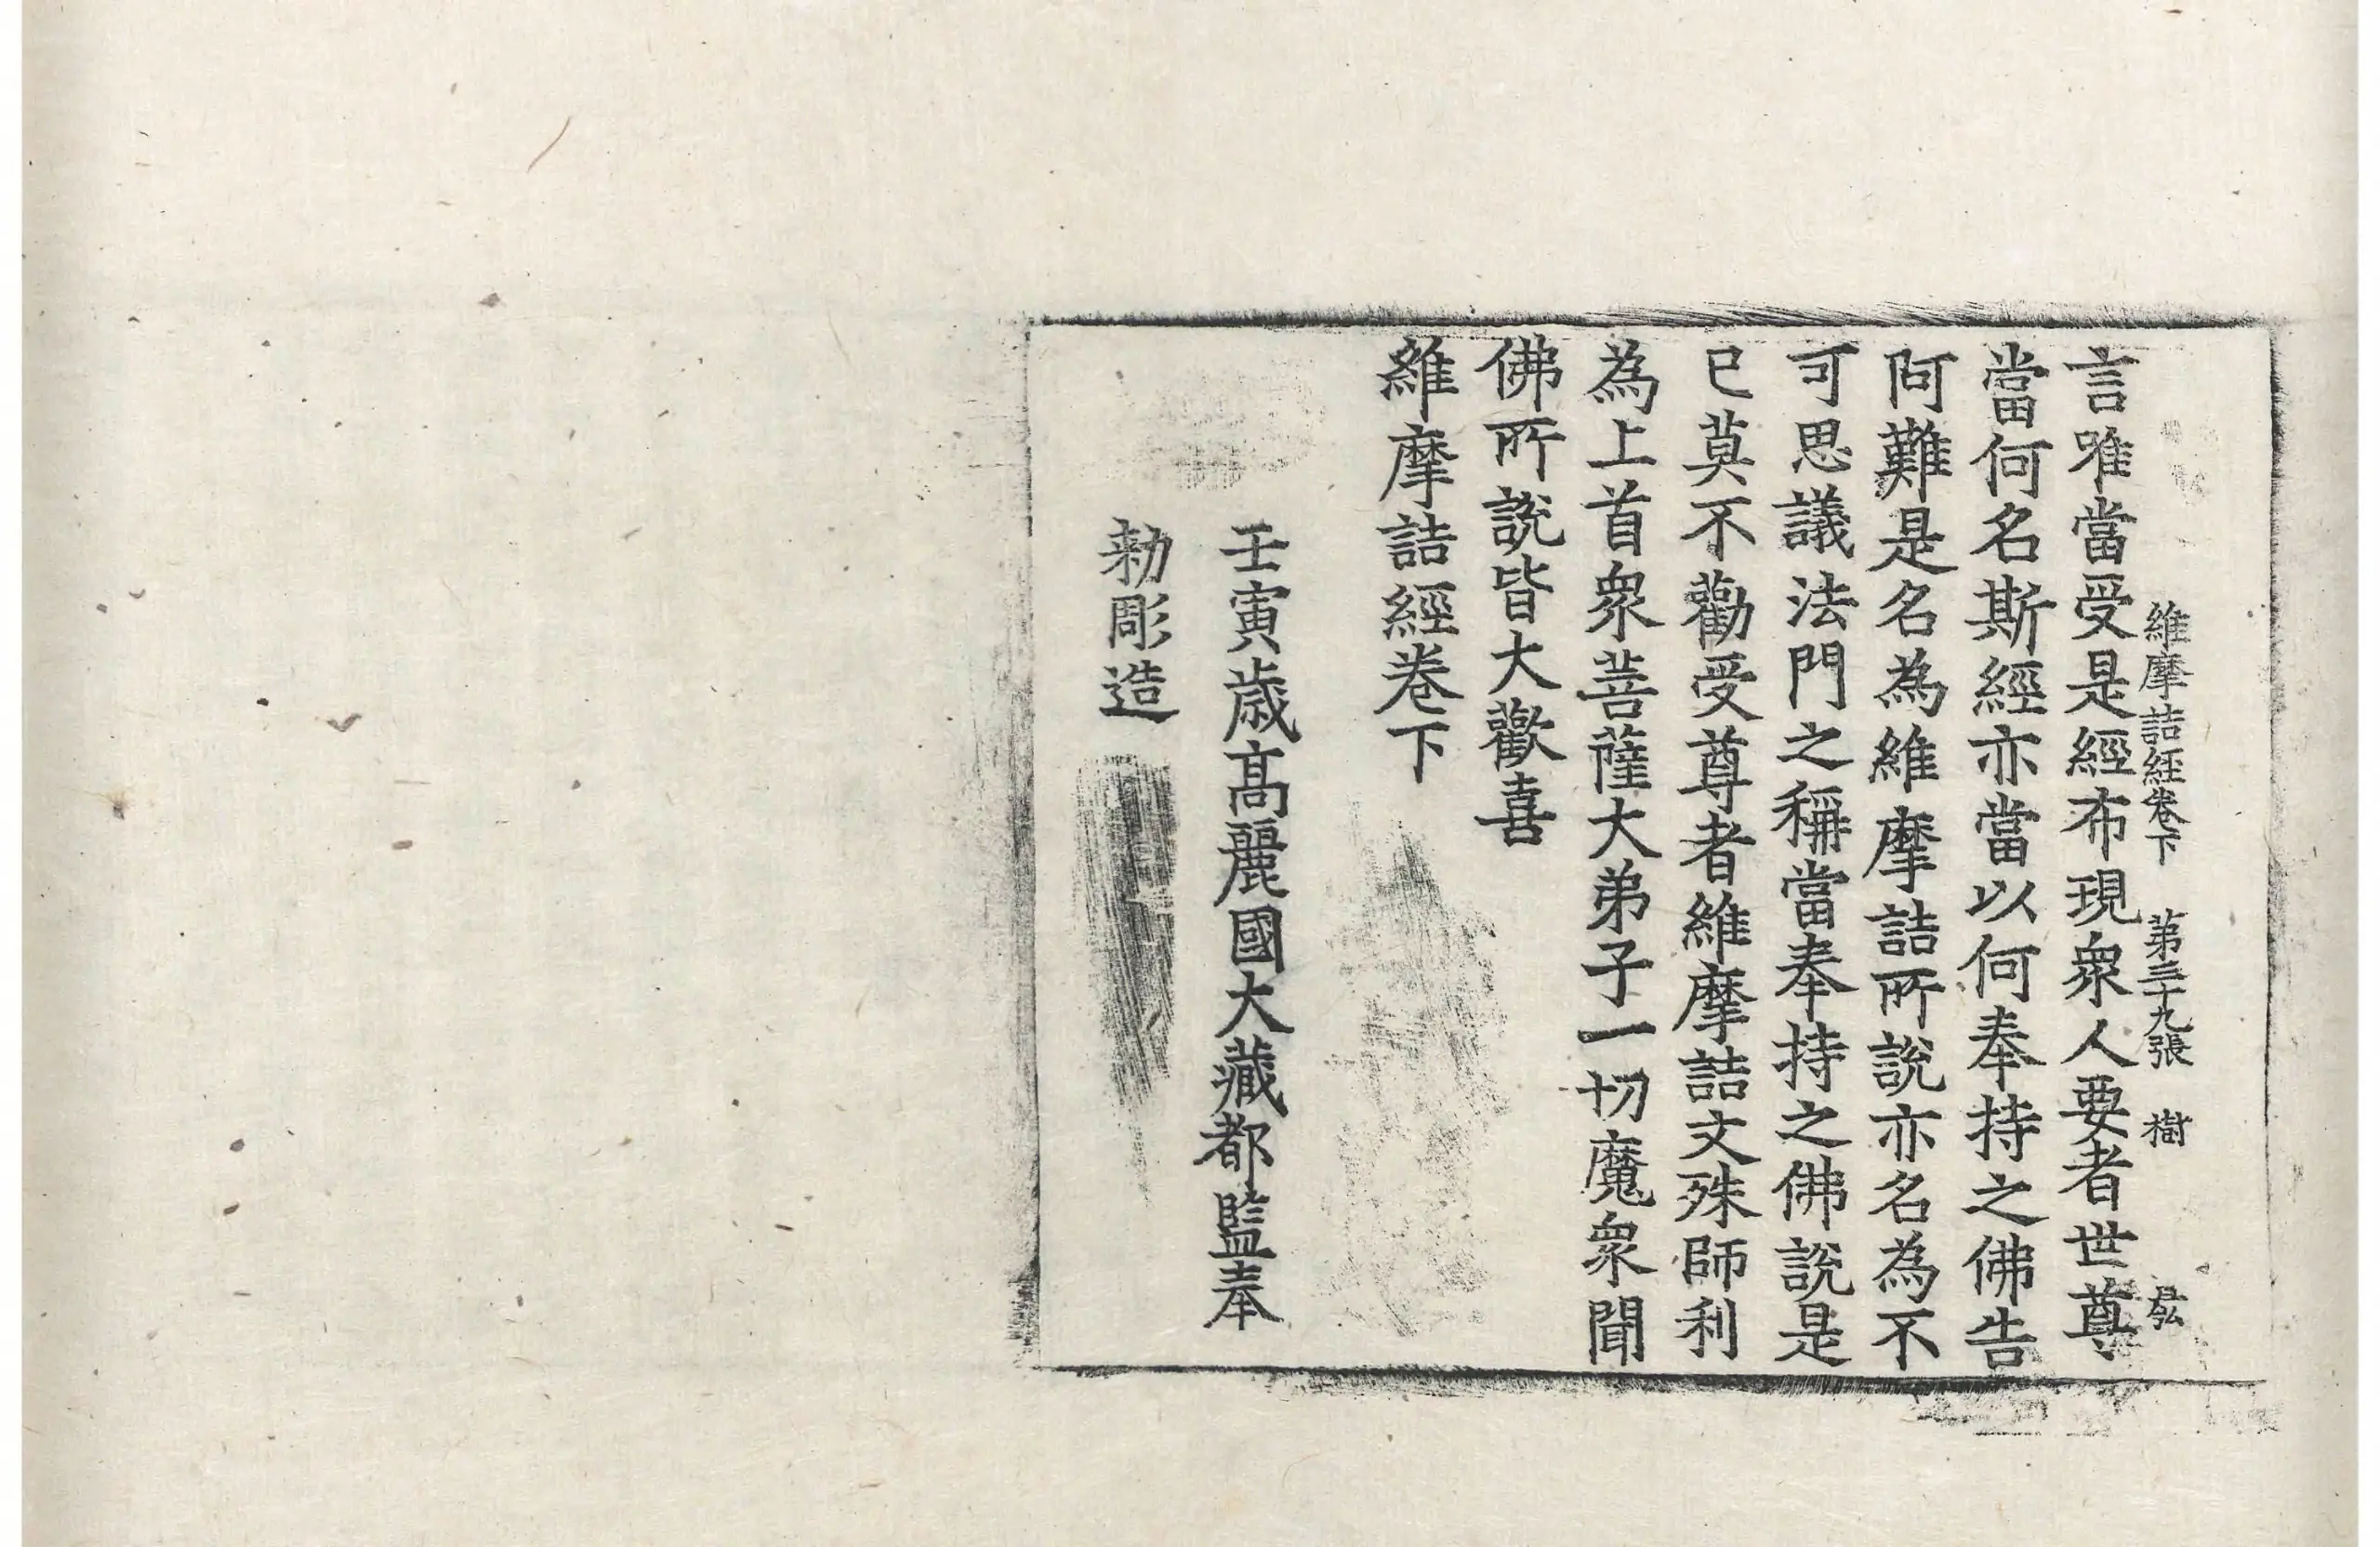 維摩詰經卷下 第三十九張 樹
言唯當受是經布現衆人要者世尊
當何名斯經亦當以何奉持之佛告
阿難是名為維摩詰所說亦名為不
可思議法門之稱當奉持之佛說是
已莫不勸受尊者維摩詰文殊師利
為上首衆菩薩大弟子一切魔衆聞
佛所說皆大歡喜
維摩詰經卷下
壬寅歳高麗國大藏都監奉
勅彫造